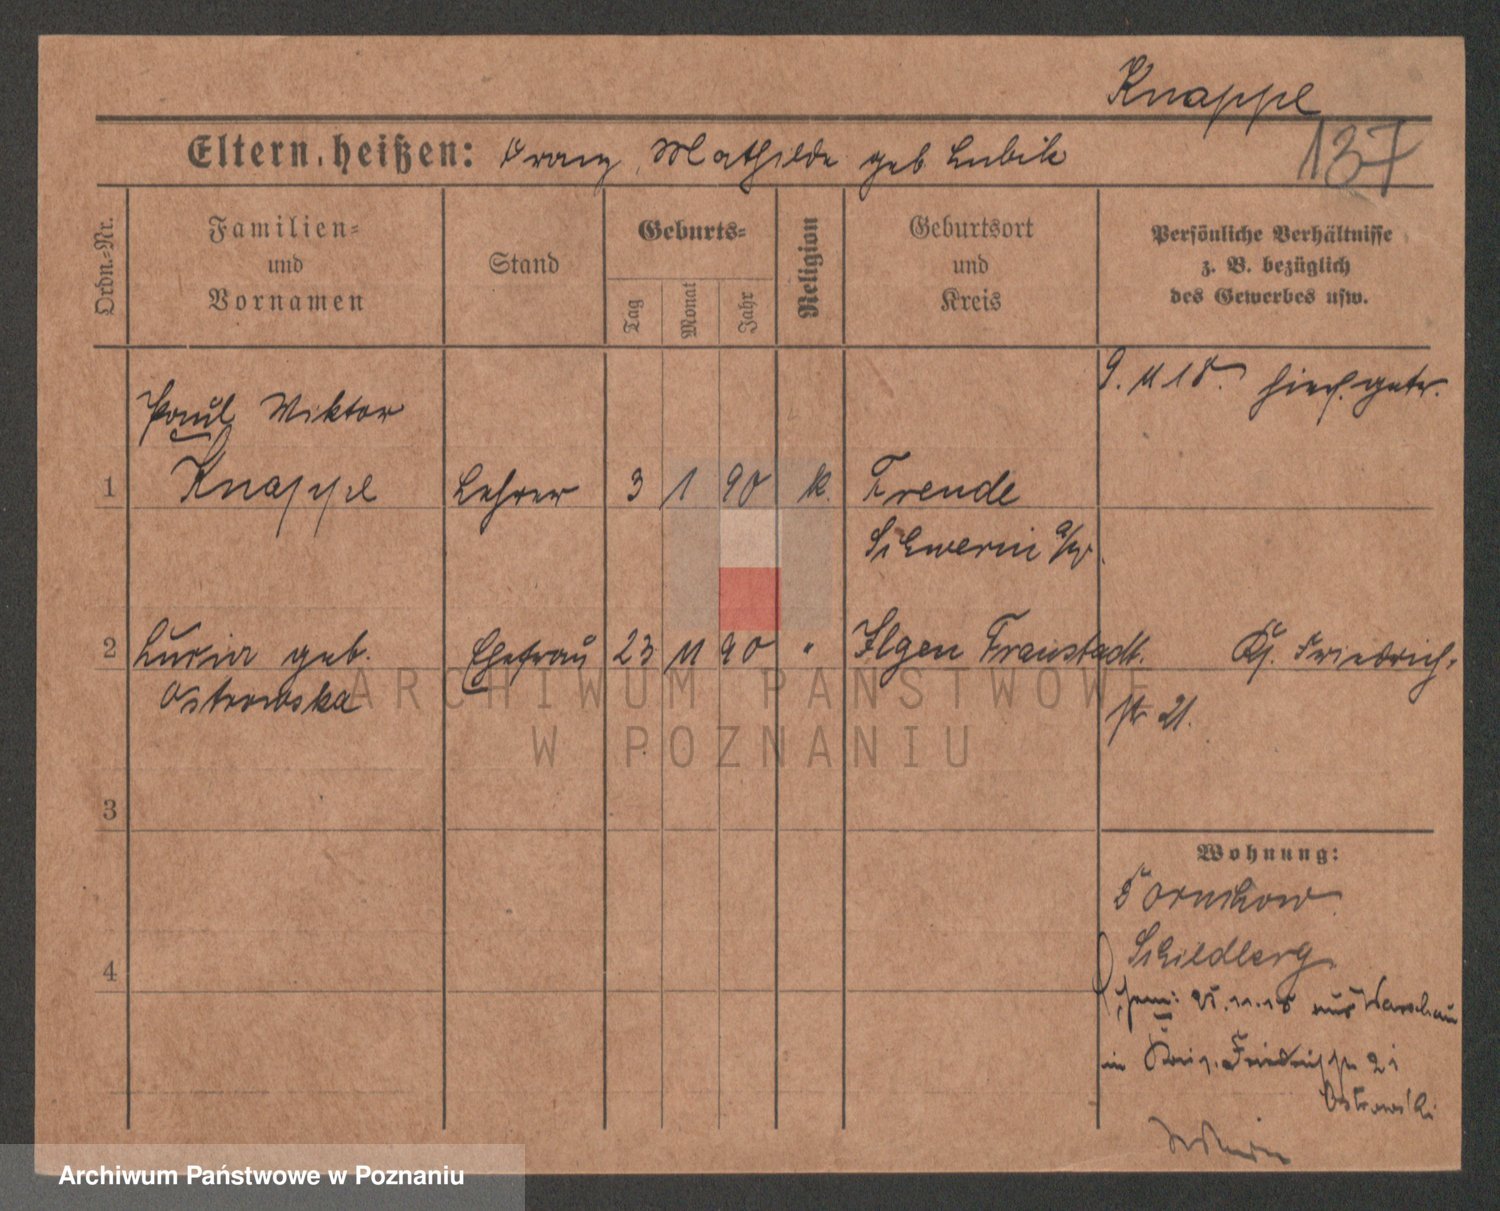 Knappe
137
Eltern heißen: Franz, Mathilde geb Lubik
Ordn.-Nr.
Familien-
und
Vornamen
Stand
Geburts-
Tag
Monat
Jahr
Religion
Geburtsort
und
Kreis
Persönliche Verhältnisse
z. B. bezüglich
des Gewerbes usw.
9. 11 18. hier getr.
Paul Viktor
1 Knappe Lehrer 3 1 90 k. Trende
Schwerin a/W.
2 Luzia geb. Ehefrau 23 11 90 " Ilgen Fraustadt. Kg. Friedrich-
Ostrowska str 21.
3
4
Wohnung:
Schildberg
25.11.18 aus Warschau
in 21
Ostrowski
ARCHIWUM PAŃSTWOWE
W POZNANIU
Archiwum Państwowe w Poznaniu